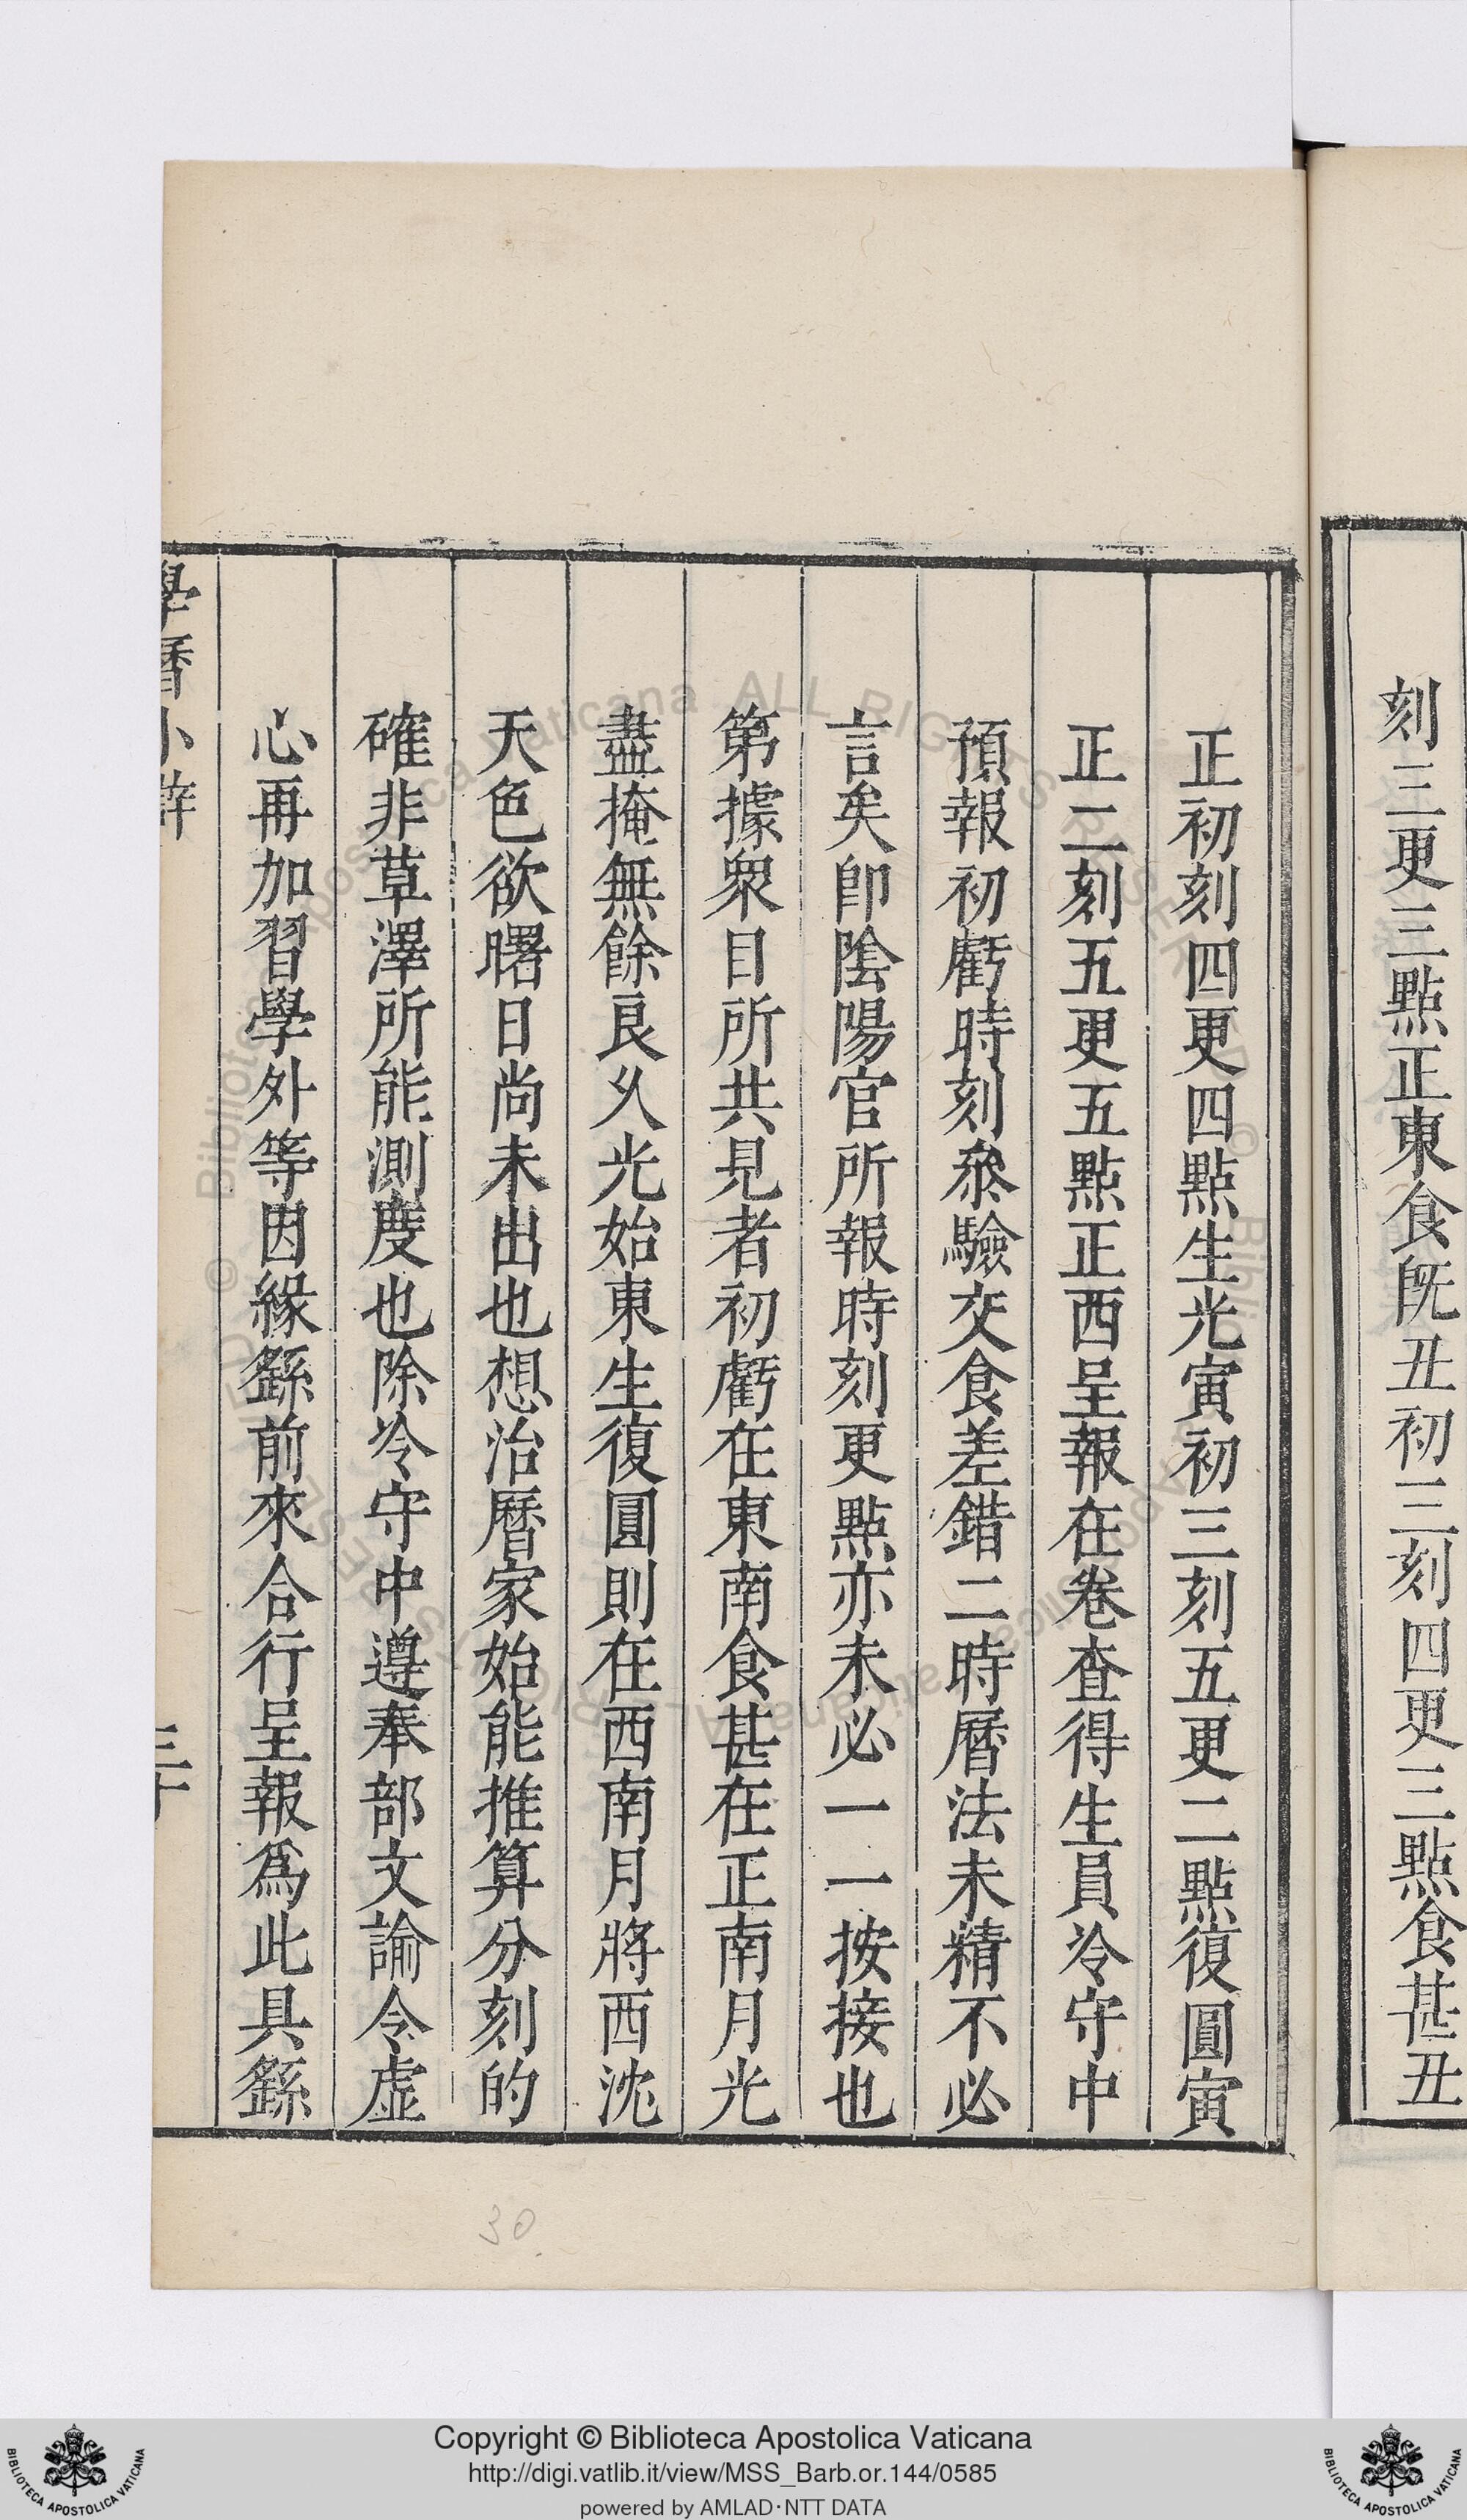 刻三更三點正東食旣丑初三刻四更三點食甚丑
正初刻四更四點生光寅初三刻五更二點復圓寅
正二刻五更五點正西呈報在卷查得生員冷守中
預報初虧時刻叅驗交食差錯二時曆法未精不必
言矣卽陰陽官所報時刻更點亦未必一一按接也
第據衆目所共見者初虧在東南食甚在正南月光
盡掩無餘良乆光始東生復圓則在西南月將西沈
天色欲曙日尚未出也想治曆家始能推算分刻的
確非草澤所能測度也除冷守中遵奉部文諭令虛
心再加習學外等因緣繇前來合行呈報爲此具繇
學曆小辯
三十
30
Copyright © Biblioteca Apostolica Vaticana
http://digi.vatlib.it/view/MSS_Barb.or.144/0585
powered by AMLAD·NTT DATA
BIBLIOTECA APOSTOLICA VATICANA
BIBLIOTECA APOSTOLICA VATICANA